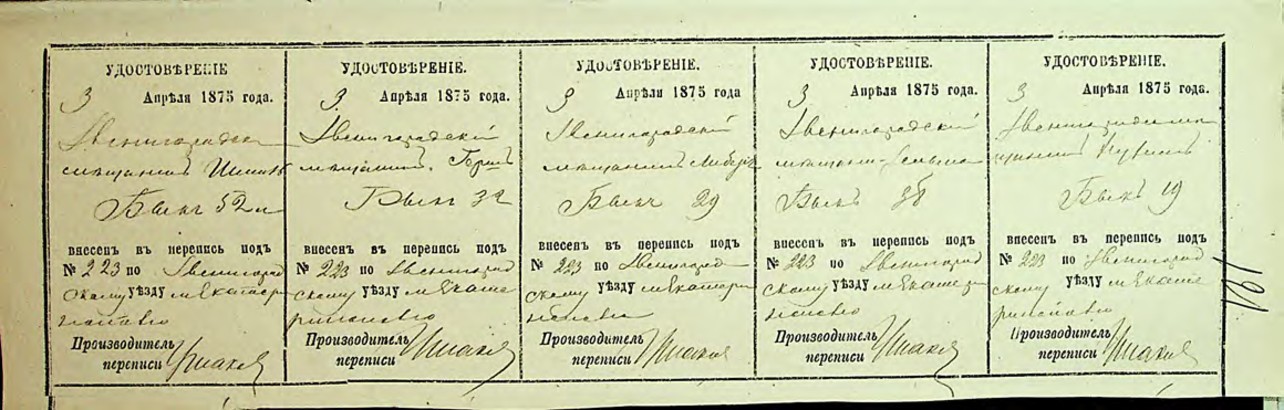 УДОСТОВѢРЕНІЕ
3 Апрѣля 1875 года.
Звенигородск
мещанинъ Шмилъ
Быкъ 52 л
внесенъ въ перепись подъ
№ 223 по Звенигород
скому уѣзду м Екатери
нополью
Производитель
переписи
УДОСТОВѢРЕНІЕ.
3 Апрѣля 1875 года.
Звенигородскій
мещанинъ
Быкъ 32
внесенъ въ перепись подъ
№ 223 по Звенигород
скому уѣзду м Екате
ринополью
Производитель
переписи
УДОСТОВѢРЕНІЕ.
3 Апрѣля 1875 года
Звенигородскій
мещанинъ Либеръ
Быкъ 29
внесенъ въ перепись подъ
№ 223 по Звенигород
скому уѣзду м Екатери
нополью
Производитель
переписи
УДОСТОВѢРЕНІЕ.
3 Апрѣля 1875 года.
Звенигородскій
мещанинъ
Быкъ
внесенъ въ перепись подъ
№ 223 по Звенигород
скому уѣзду м Екатери
нополью
Производитель
переписи
УДОСТОВѢРЕНІЕ.
3 Апрѣля 1875 года.
Звенигородск ме
щанинъ
Быкъ 19
внесенъ въ перепись подъ
№ 223 по Звенигород
скому уѣзду м Екате
ринополью
Производитель
переписи
191